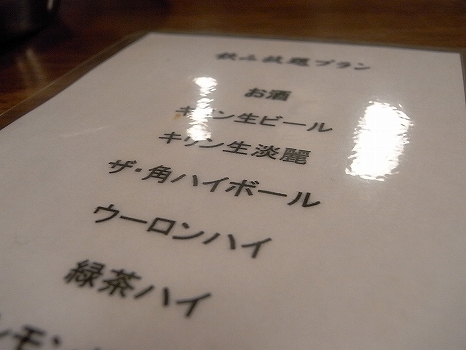 飲み放題プラン
お酒
キリン生ビール
キリン生淡麗
ザ・角ハイボール
ウーロンハイ
緑茶ハイ